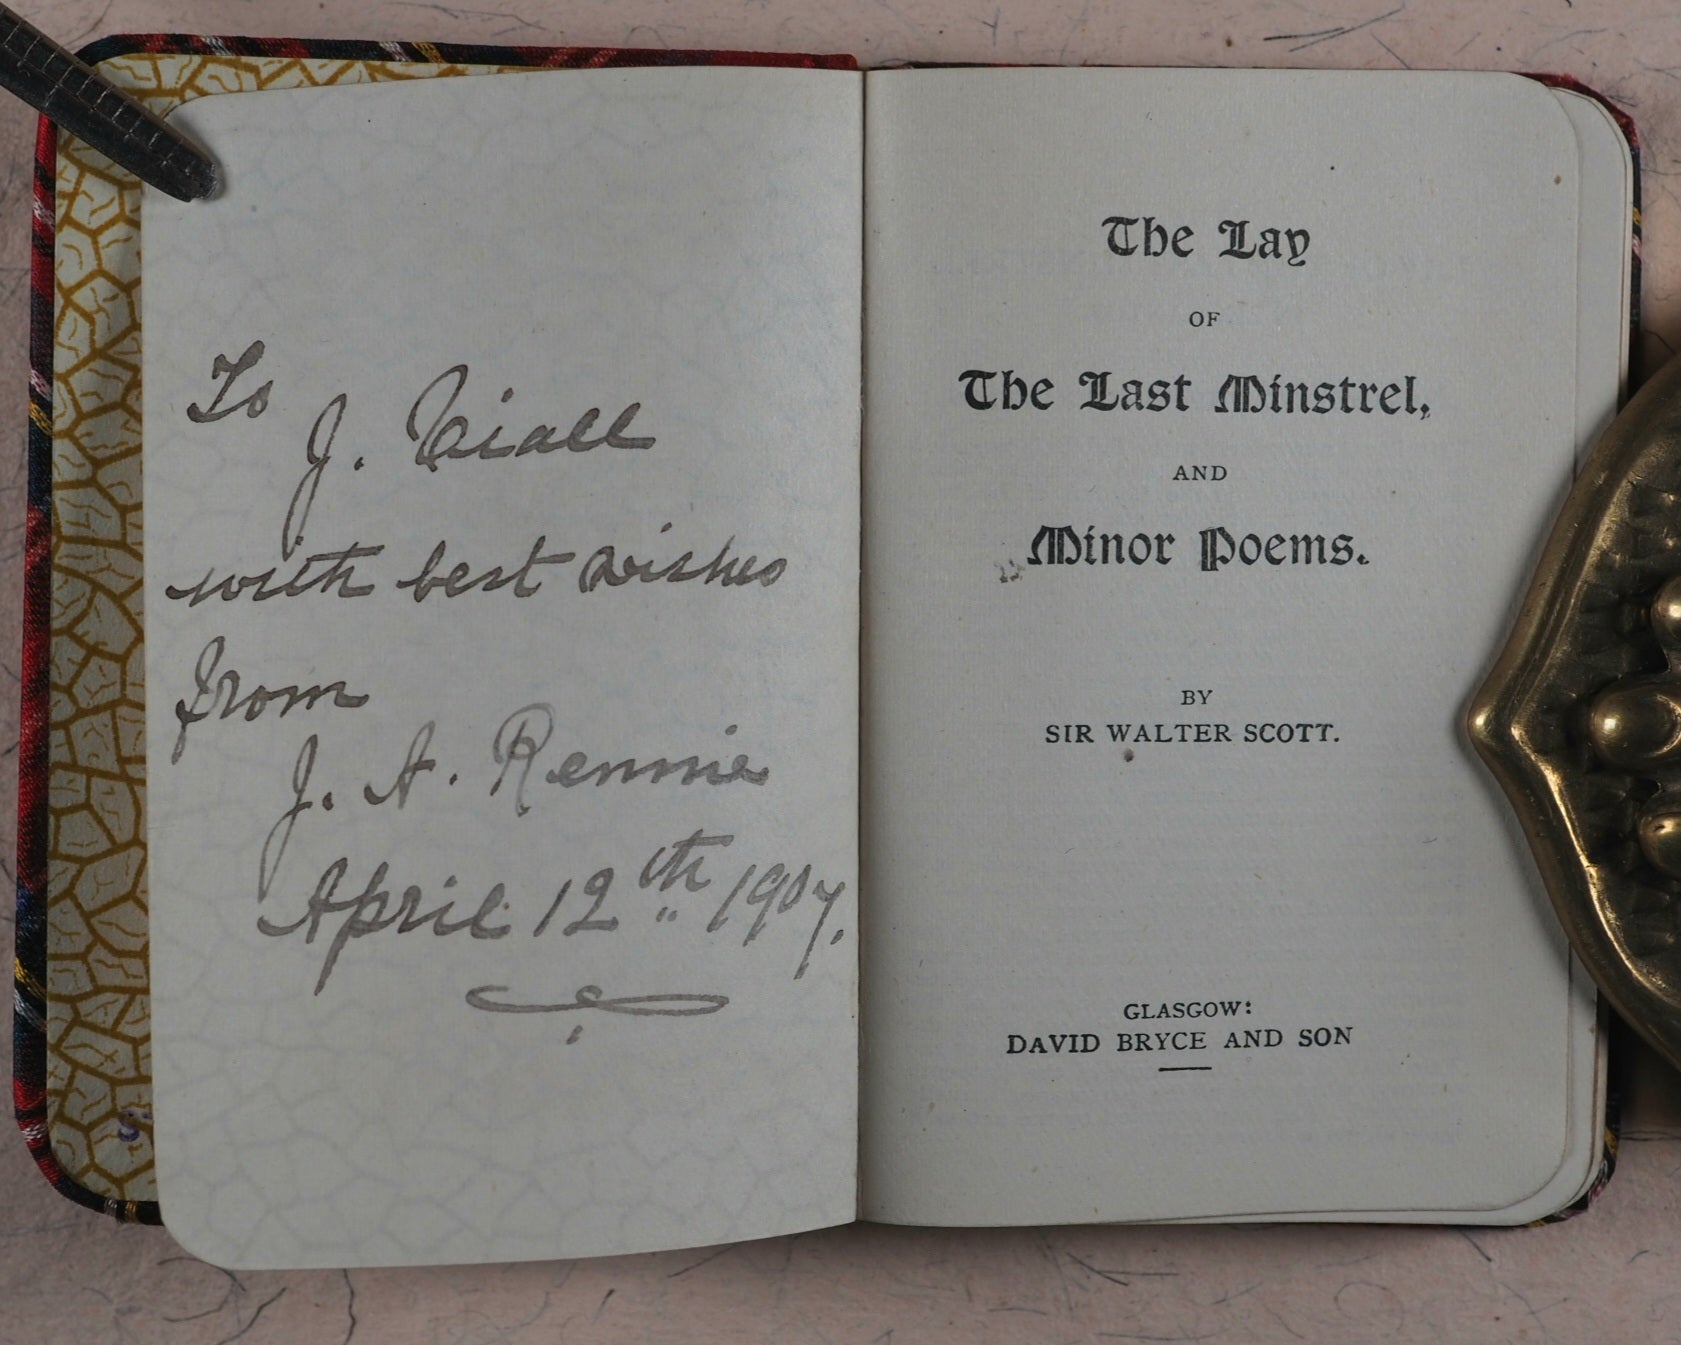 To
J. Viall
with best wishes
from
J. A. Rennie
April 12th 1907.
The Lay
OF
The Last Minstrel,
AND
Minor Poems.
BY
SIR WALTER SCOTT.
GLASGOW:
DAVID BRYCE AND SON